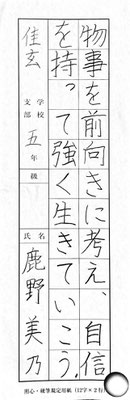 物事を前向きに考え、自信
を持って強く生きていこう。
佳玄
学校
支部
五年
級
氏名
鹿野美乃
用心・硬筆規定用紙(12字×2行)